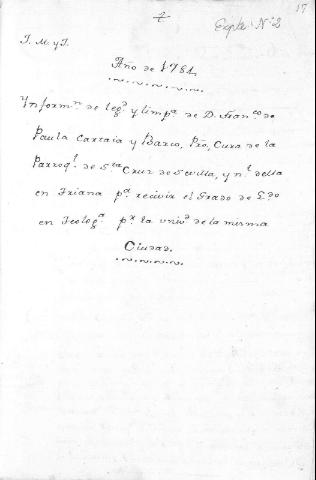 17
Expte. Nº 2
J. M. y J.
Año de 1784
Ynform.ⁿ de leg.ᵈ y limp.ᵃ de D. Fran.ᶜᵒ de
Paula Cartaia y Barco, Pro, Cura de la
Parroq.ˡ de S.ᵗᵃ Cruz de Sevilla, y n.ˡ della
en Triana p.ᵃ recivir el Grado de L.ᵈᵒ
en Teolog.ᵃ p.ʳ la univ.ᵈ de la misma
Ciudad.